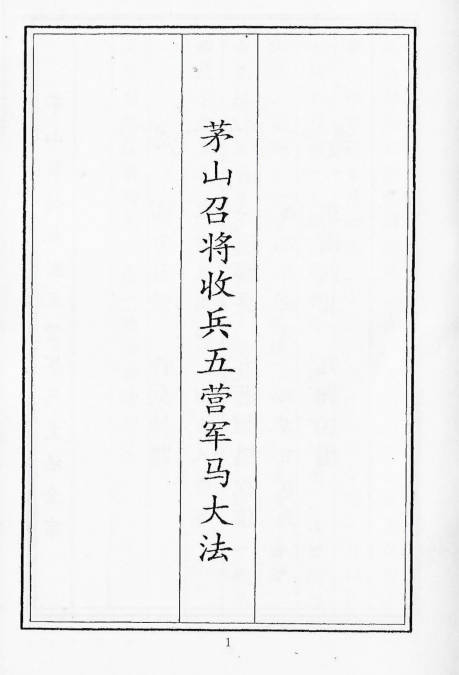 茅山召将收兵五营军马大法
1